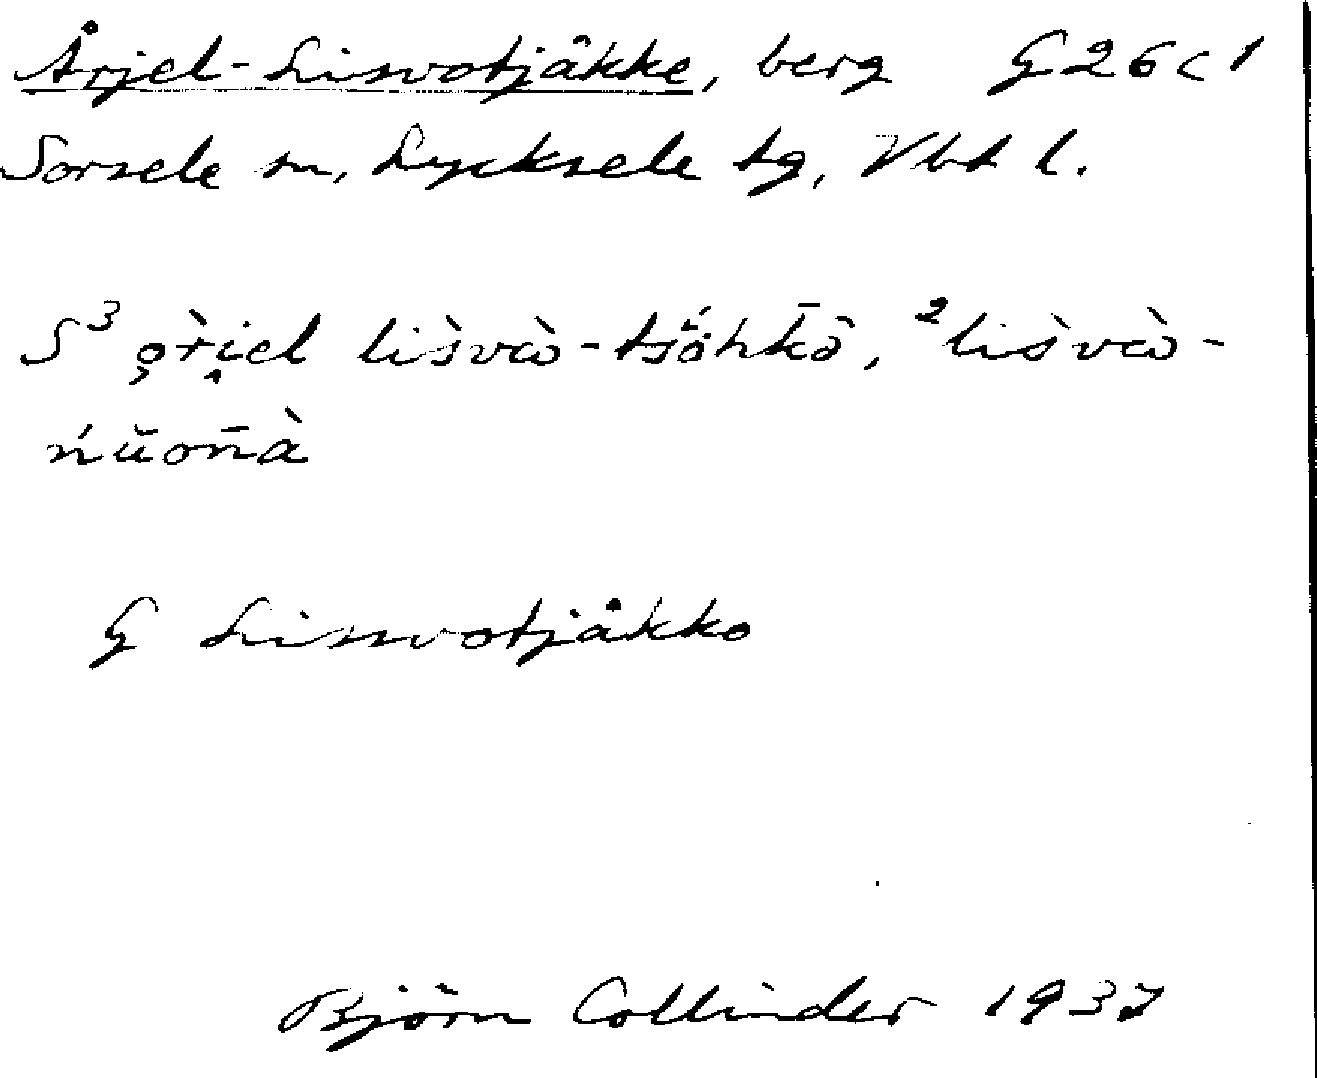 Årjel-Lisvotjåkke, berg G 26 c 1
Sorsele sn, Lycksele tg, Vbt l.
S ³o̧r̀i̭el lis̀vcò-tšǻhk̄ò, ²lis̀vcò-
ńŭōn̄à
G Lisvotjåkko
Björn Collinder 1937